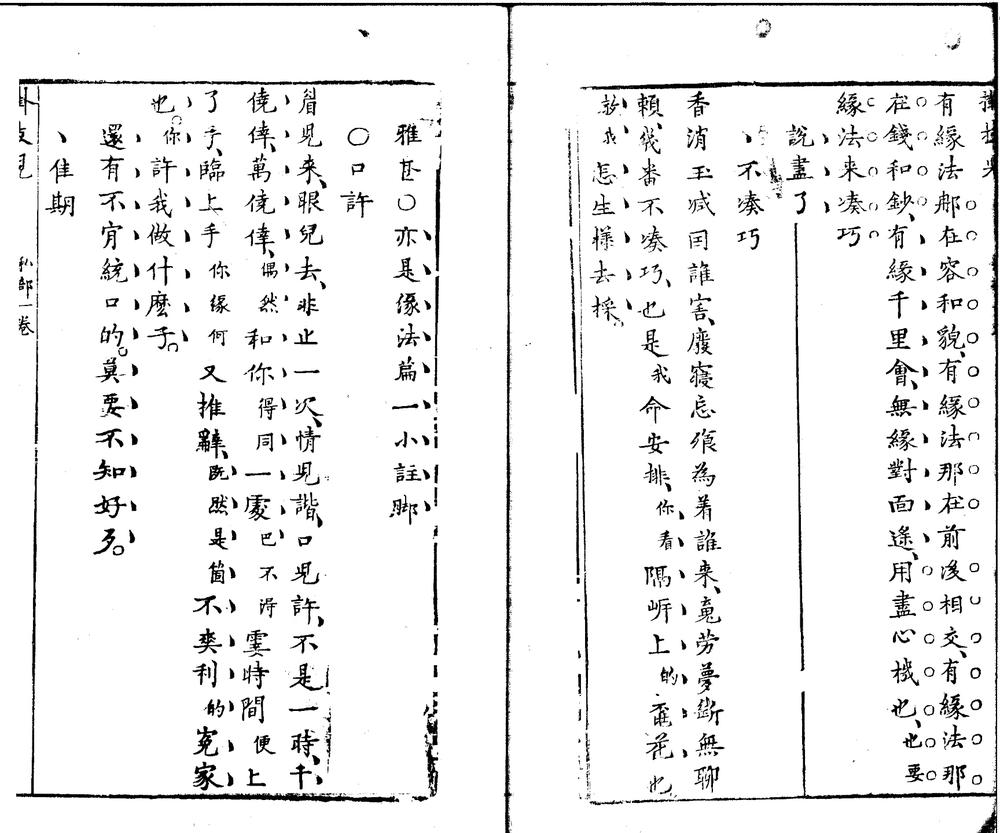 有緣法那在容和貌、有緣法那在前後相交、有緣法那
在錢和鈔、有緣千里會、無緣對面遙、用盡心機也、也要
緣法来凑巧
說盡了
不凑巧
香消玉减囙誰害、廢寢忘飡為着誰来、䰟劳夢斷無聊
頼、幾番不凑巧、也是我命安排、你看隔㟁上的㐬花也
教我怎生樣去採。
雅甚〇亦是緣法篇一小註脚
〇口許
眉児来、眼兒去、非止一次、情児諧、口児許、不是一時、千
僥倖、萬僥倖、偶然和你得同一處巴不得霎時間便上
了手、臨上手你緣何又推辭、既然是箇不爽利的寃家
也。你許我做什麽子。
還有不肯統口的。莫要不知好歹。
佳期
掛枝兒
私部一卷